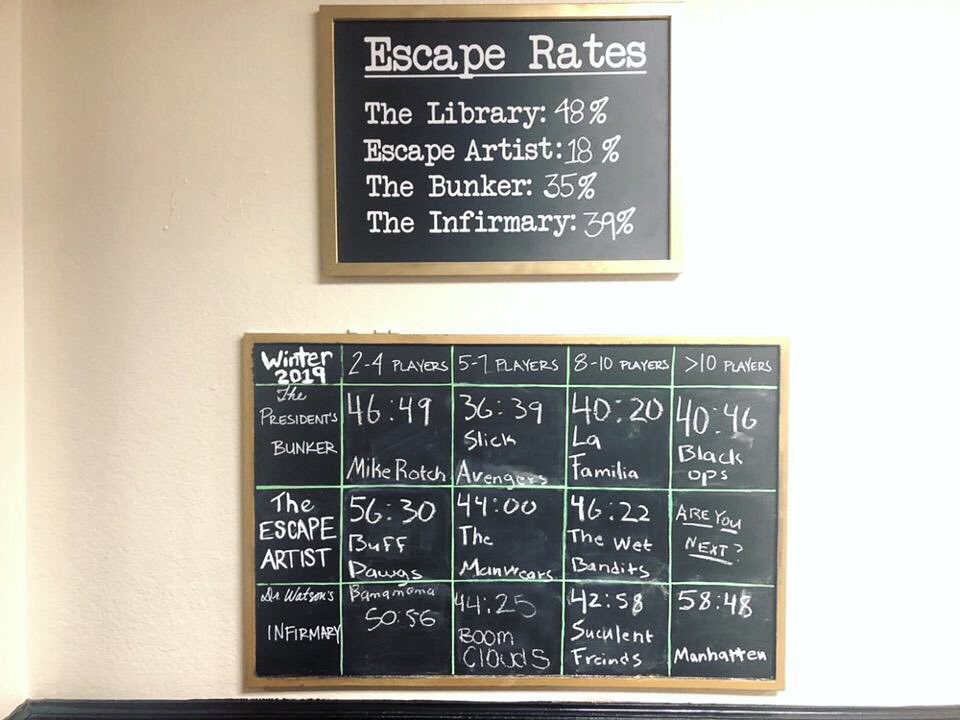 Escape Rates
The Library: 48%
Escape Artist: 18%
The Bunker: 35%
The Infirmary: 39%
Winter
2019
2-4 PLAYERS
5-7 PLAYERS
8-10 PLAYERS
>10 PLAYERS
The
PRESIDENT'S
BUNKER
46:49
Mike Rotch
36:39
Slick
Avengers
40:20
La
Familia
40:46
Black
ops
The
ESCAPE
ARTIST
56:30
Buff
Dawgs
44:00
The
46:22
The Wet
Bandits
ARE YOU
NEXT?
Dr Watson's
INFIRMARY
Bananama
50:56
44:25
BOOM
CLOUDS
42:58
Suculent
Freinds
58:48
Manhatten